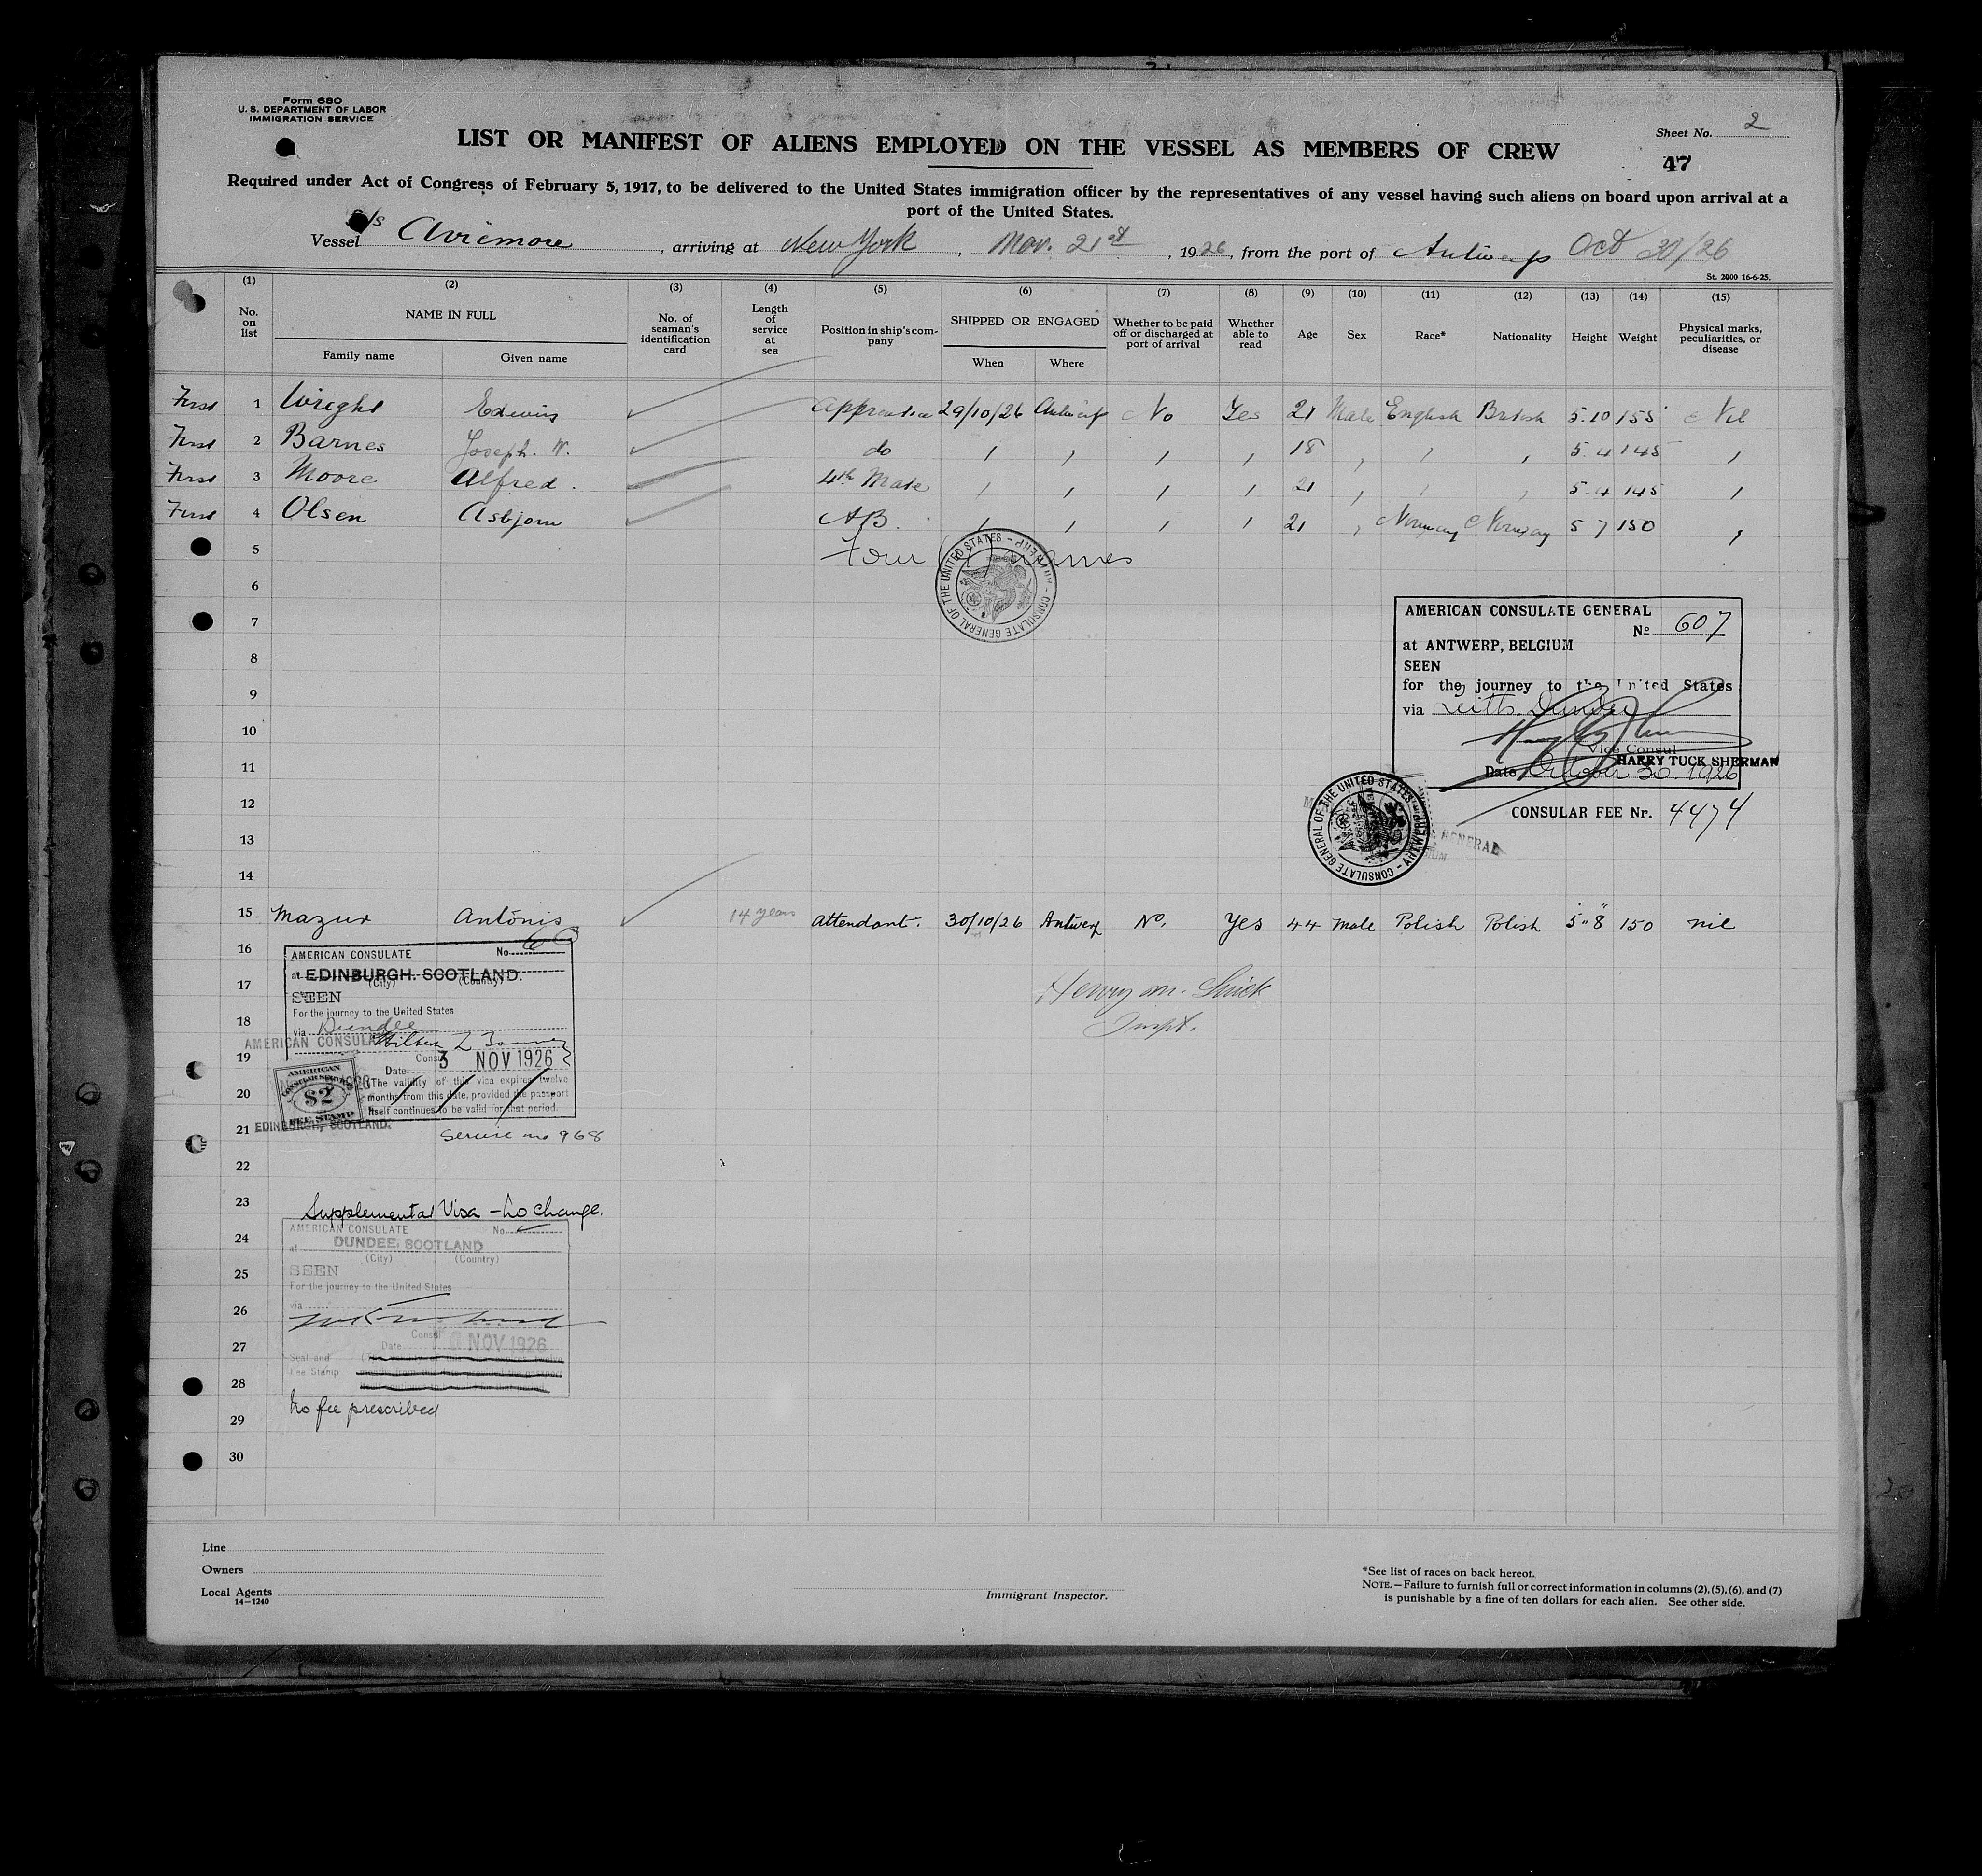 Form 680
U. S. DEPARTMENT OF LABOR
IMMIGRATION SERVICE
Sheet No. 2
LIST OR MANIFEST OF ALIENS EMPLOYED ON THE VESSEL AS MEMBERS OF CREW
47
Required under Act of Congress of February 5, 1917, to be delivered to the United States immigration officer by the representatives of any vessel having such aliens on board upon arrival at a
port of the United States.
Vessel S/s Aviemore, arriving at New York, Nov. 21st, 1926, from the port of Antwerp Oct 30/26
St. 2000 16-6-25.
(1) (2) (3) (4) (5) (6) (7) (8) (9) (10) (11) (12) (13) (14) (15)
No. on list
NAME IN FULL
Family name Given name
No. of seaman's identification card
Length of service at sea
Position in ship's company
SHIPPED OR ENGAGED
When Where
Whether to be paid off or discharged at port of arrival
Whether able to read
Age Sex Race* Nationality Height Weight
Physical marks, peculiarities, or disease
First 1 Wright Edwin Apprentice 29/10/26 Antwerp No Yes 21 Male English British 5.10 155 Nil
First 2 Barnes Joseph. W. do 18 5.4 145
First 3 Moore Alfred. 4th Mate 21 5.4 145
First 4 Olsen Asbjorn A.B. 21 Norway Norway 5 7 150
5 Four (4) names
CONSULATE GENERAL OF THE UNITED STATES - ANTWERP -
6
7
8
9
10
11
12
13
14
AMERICAN CONSULATE GENERAL
No 607
at ANTWERP, BELGIUM
SEEN
for the journey to the United States
via Leith, Dundee
Vice Consul
HARRY TUCK SHERMAN
Date October 30, 1926
CONSULAR FEE Nr. 4474
CONSULATE GENERAL OF THE UNITED STATES - ANTWERP -
15 Mazur Antonis 14 years attendant. 30/10/26 Antwerp No. Yes 44 Male Polish Polish 5"8" 150 nil
16
17
18
19
20
21
22
23
24
25
26
27
28
29
30
AMERICAN CONSULATE No. 60
at EDINBURGH. SCOTLAND.
(City) (Country)
SEEN
For the journey to the United States
via Dundee
AMERICAN CONSULA
Consul
Date 3 NOV 1926
(The validity of this visa expires twelve
months from this date, provided the passport
itself continues to be valid for that period.
AMERICAN
CONSULAR SERVICE
$2
FEE STAMP
EDINBURGH, SCOTLAND.
Service no 968
Henry M.
Inspt.
Supplemental Visa - No change.
AMERICAN CONSULATE No.
at DUNDEE, SCOTLAND
(City) (Country)
SEEN
For the journey to the United States
via
Consul
Date NOV 1926
Seal and
Fee Stamp
No fee prescribed
Line
Owners
Local Agents
14—1240
Immigrant Inspector.
*See list of races on back hereof.
NOTE.—Failure to furnish full or correct information in columns (2), (5), (6), and (7)
is punishable by a fine of ten dollars for each alien. See other side.